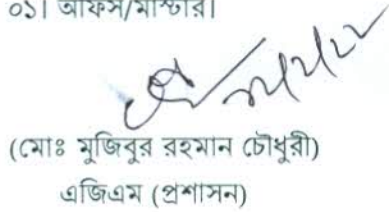 ০১। অফিস/মাস্টার।
(মোঃ মুজিবুর রহমান চৌধুরী)
এজিএম (প্রশাসন)